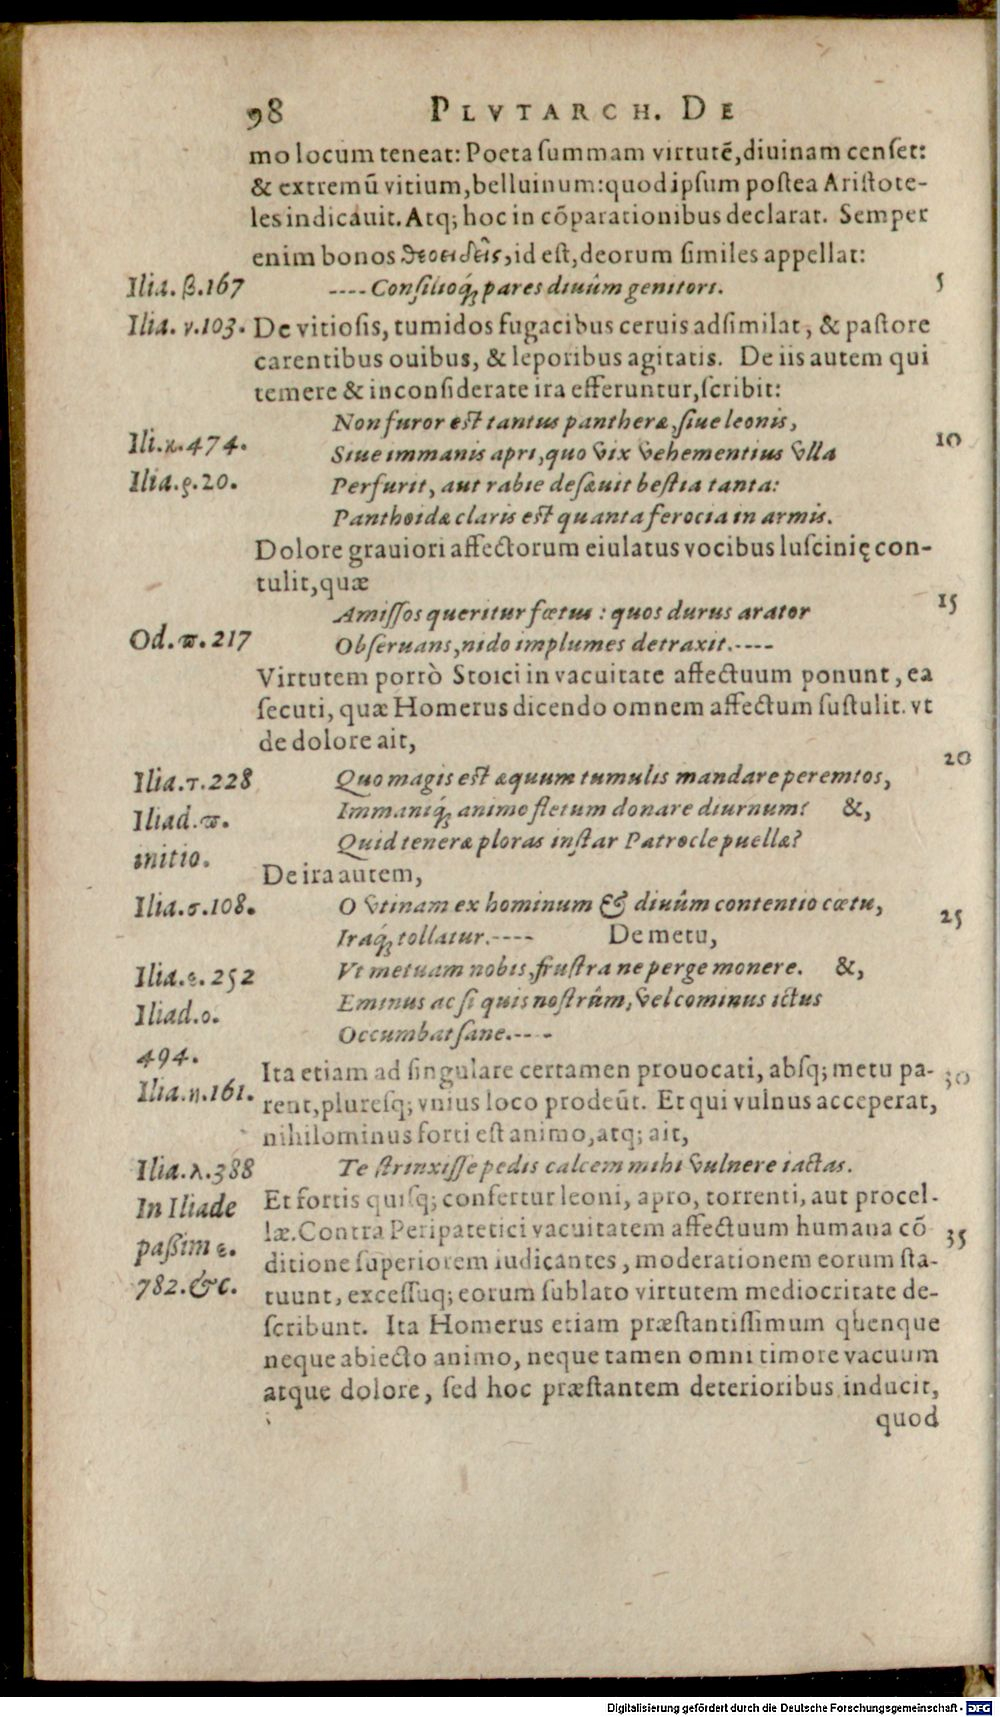 98 PLVTARCH. DE
mo locum teneat: Poeta summam virtutẽ, diuinam censet:
& extremũ vitium, belluinum: quod ipsum postea Aristote-
les indicauit. Atq; hoc in cõparationibus declarat. Semper
enim bonos θεοειδεῖς, id est, deorum similes appellat:
Ilia. β. 167 ---- Consilioq́; pares diuûm genitori. 5
Ilia. ν. 103. De vitiosis, tumidos fugacibus ceruis adsimilat, & pastore
carentibus ouibus, & leporibus agitatis. De iis autem qui
temere & inconsiderate ira efferuntur, scribit:
Non furor est tantus pantheræ, siue leonis,
Ili. χ. 474. Siue immanis apri, quo vix vehementius vlla 10
Ilia. ρ. 20. Perfurit, aut rabie desæuit bestia tanta:
Panthoidæ claris est quanta ferocia in armis.
Dolore grauiori affectorum eiulatus vocibus luscinię con-
tulit, quæ
Amissos queritur fœtus: quos durus arator 15
Od. π. 217 Obseruans, nido implumes detraxit.----
Virtutem porrò Stoici in vacuitate affectuum ponunt, ea
secuti, quæ Homerus dicendo omnem affectum sustulit. vt
de dolore ait,
20
Ilia. τ. 228 Quo magis est æquum tumulis mandare peremtos,
Iliad. π. Immaniq́; animo fletum donare diurnum: &,
initio. Quid teneræ ploras instar Patrocle puellæ?
De ira autem,
Ilia. σ. 108. O vtinam ex hominum & diuûm contentio cœtu,
Iraq́; tollatur.---- De metu, 25
Ilia. ε. 252 Vt metuam nobis, frustra ne perge monere. &,
Iliad. ο. Eminus ac si quis nostrûm, vel cominus ictus
494. Occumbat sane.-- -
Ita etiam ad singulare certamen prouocati, absq; metu pa- 30
Ilia. η. 161. rent, pluresq; vnius loco prodeũt. Et qui vulnus acceperat,
nihilominus forti est animo, atq; ait,
Ilia. λ. 388 Te strinxisse pedis calcem mihi vulnere iactas.
In Iliade Et fortis quisq; confertur leoni, apro, torrenti, aut procel-
passim ε. læ. Contra Peripatetici vacuitatem affectuum humana cõ 35
782. &c. ditione superiorem iudicantes, moderationem eorum sta-
tuunt, excessuq; eorum sublato virtutem mediocritate de-
scribunt. Ita Homerus etiam præstantissimum quenque
neque abiecto animo, neque tamen omni timore vacuum
atque dolore, sed hoc præstantem deterioribus inducit,
quod
Digitalisierung gefördert durch die Deutsche Forschungsgemeinschaft - DFG